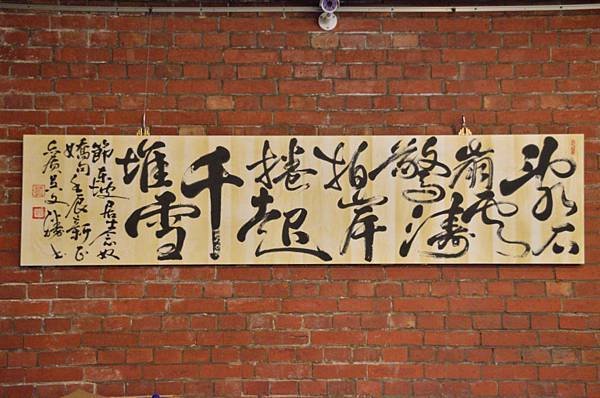 亂石
崩雲
驚濤
拍岸
捲起
千
堆雪
節東坡居士念奴
嬌句壬辰新正
書